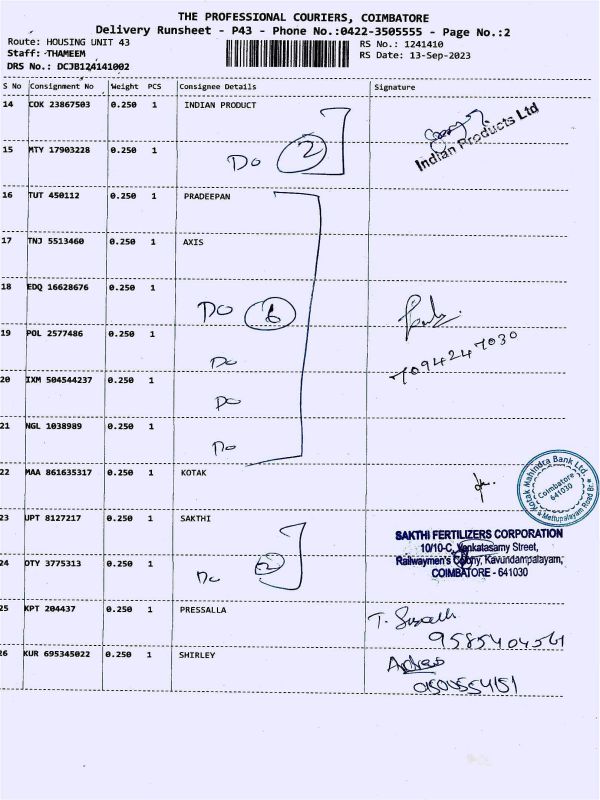 THE PROFESSIONAL COURIERS, COIMBATORE
Delivery Runsheet - P43 - Phone No.:0422-3505555 - Page No.:2
Route: HOUSING UNIT 43
RS No.: 1241410
Staff: THAMEEM
RS Date: 13-Sep-2023
DRS No.: DCJB124141002
S No Consignment No Weight PCS Consignee Details Signature
14 COK 23867503 0.250 1 INDIAN PRODUCT
Indian Products Ltd
15 MTY 17903228 0.250 1
Do 2
16 TUT 450112 0.250 1 PRADEEPAN
17 TNJ 5513460 0.250 1 AXIS
18 EDQ 16628676 0.250 1
Do 6
19 POL 2577486 0.250 1
7094247030
Do
20 IXM 504544237 0.250 1
Do
21 NGL 1038989 0.250 1
Do
22 MAA 861635317 0.250 1 KOTAK
Kotak Mahindra Bank Ltd.
Coimbatore
641030
Mettupalayam Road Br.
23 JPT 8127217 0.250 1 SAKTHI
SAKTHI FERTILIZERS CORPORATION
10/10-C, Venkatasamy Street,
Railwaymen's Colony, Kavundampalayam,
COIMBATORE - 641030
24 OTY 3775313 0.250 1
Do 2
25 KPT 204437 0.250 1 PRESSALLA
26 KUR 695345022 0.250 1 SHIRLEY